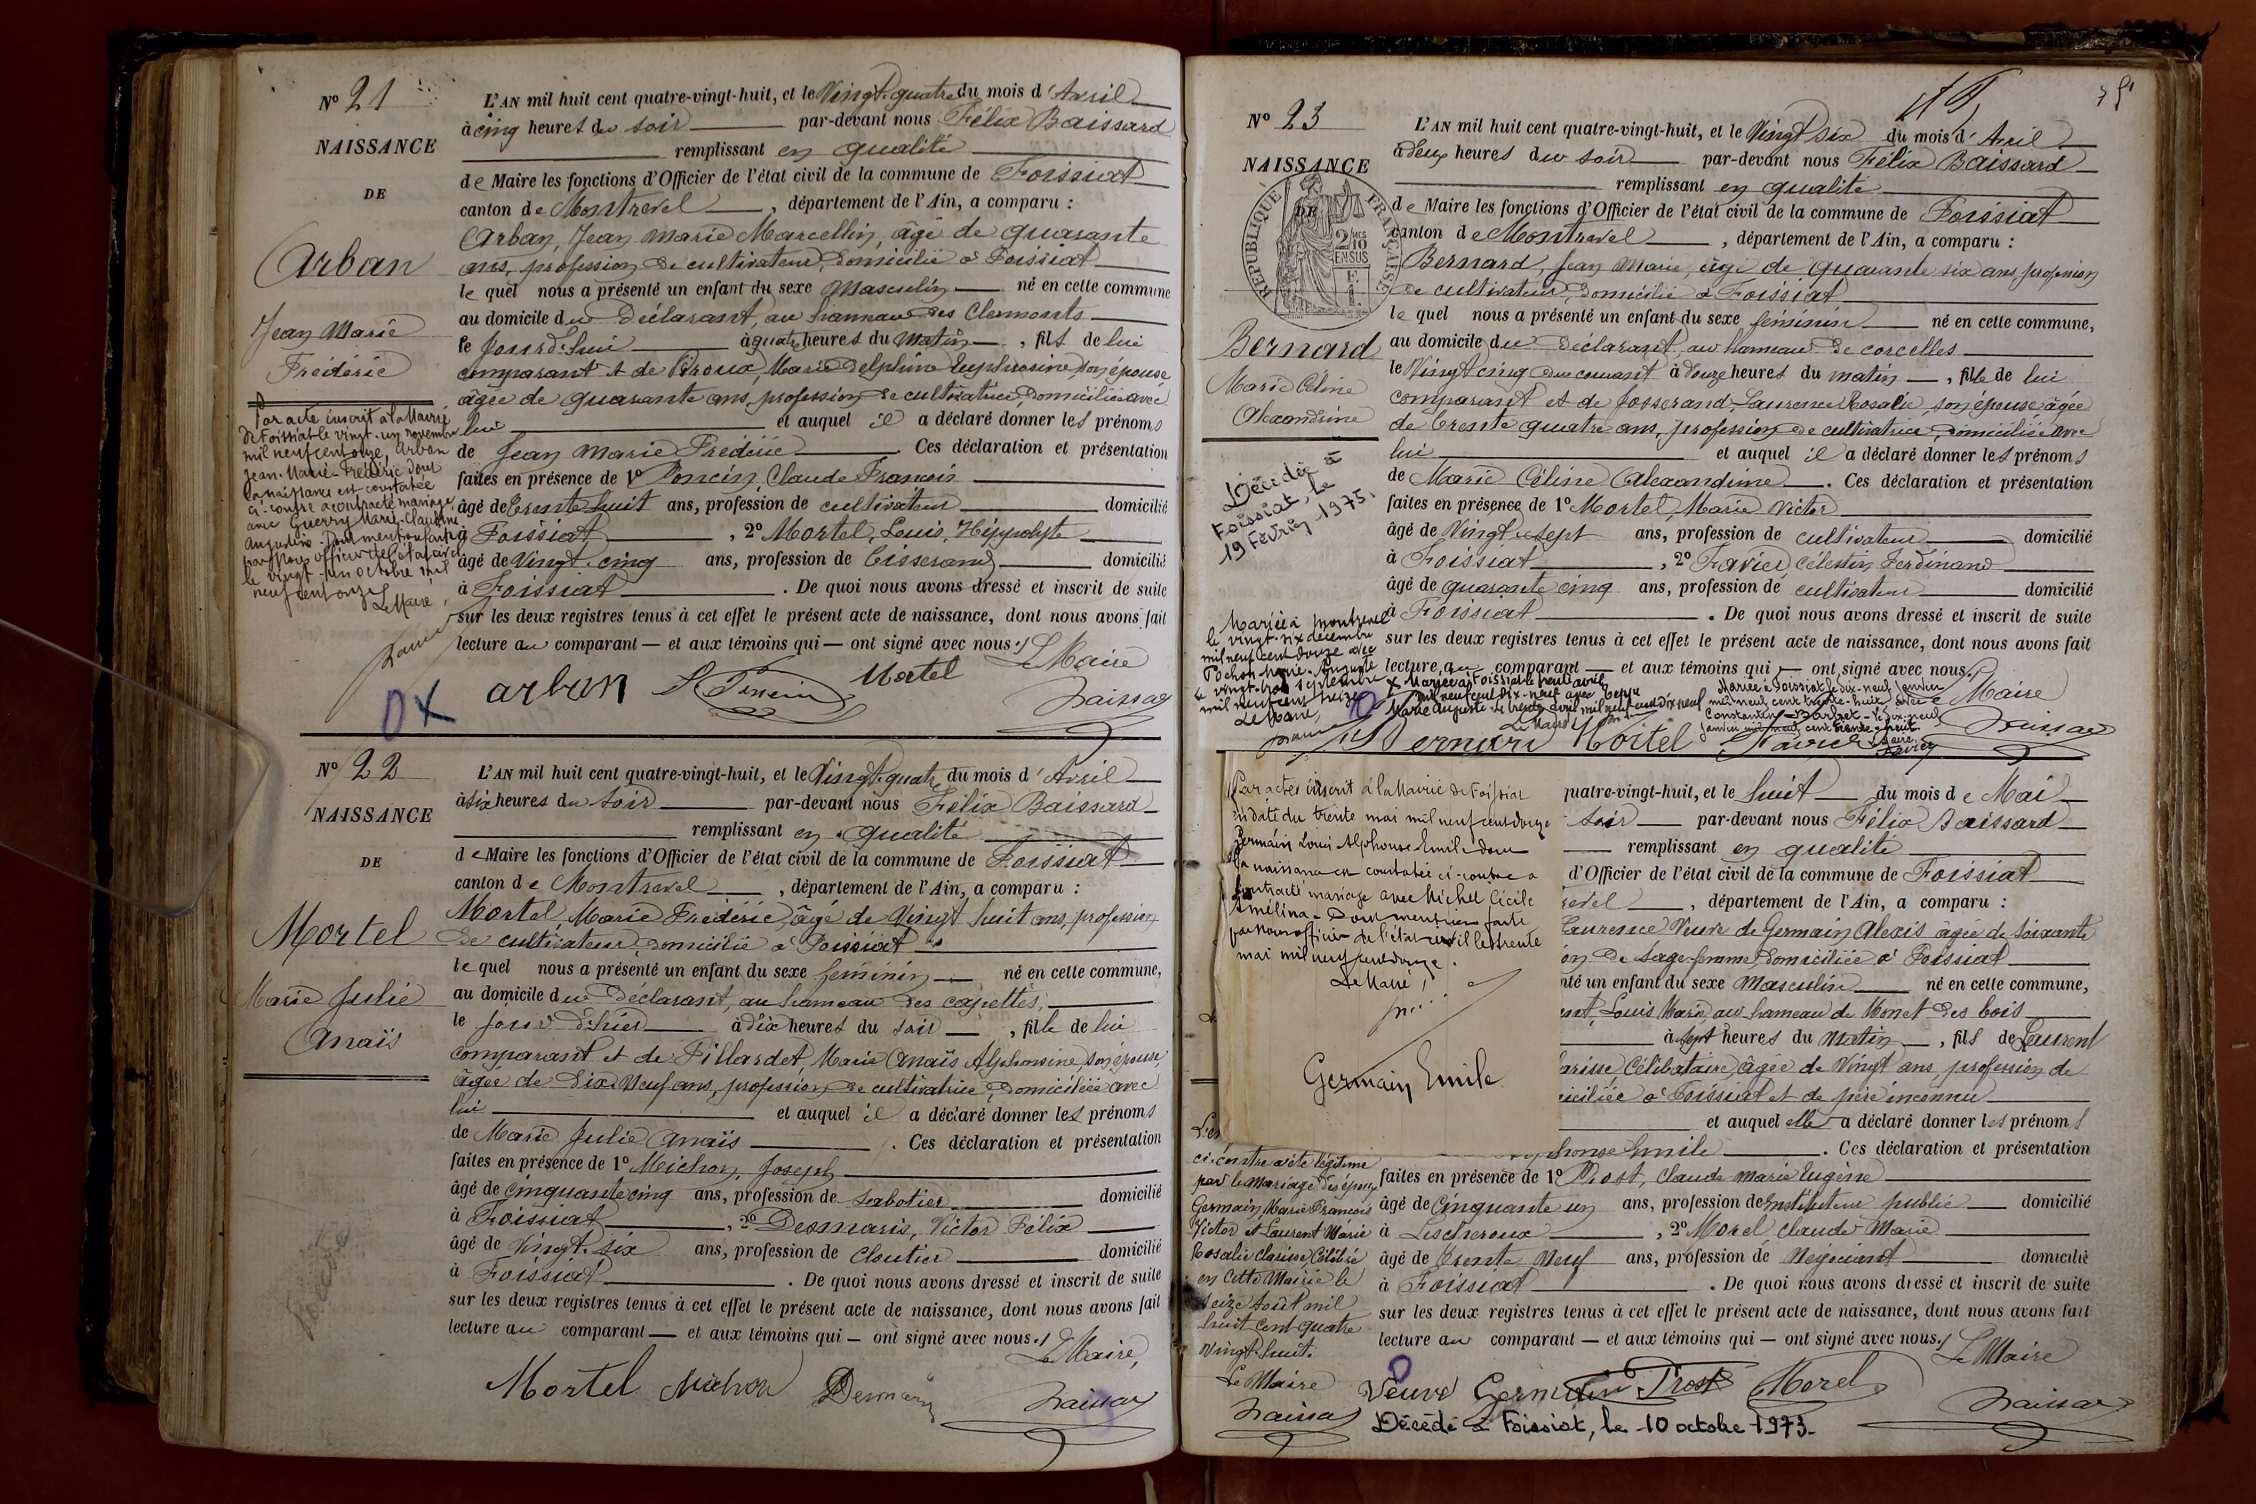 Nº 21
NAISSANCE
DE
Arban
Jean Marie
Fréderic
Par acte inscrit à la Mairie
de Foissiat le vingt-un novembre
mil neuf cent onze, Arban
Jean-Marie-Fréderic dont
la naissance est constatée
ci-contre a contracté mariage
avec Guerry Marie-Claudine
Augustine. Dont mention faite
par nous officier de l'état civil
le vingt-un octobre mil
neuf cent onze
Le Maire,
L'AN mil huit cent quatre-vingt-huit, et le Vingt-quatre du mois d'Avril
à cinq heures du soir par-devant nous Félix Baissard
remplissant en qualité
de Maire les fonctions d'Officier de l'état civil de la commune de Foissiat
canton de Montrevel, département de l'Ain, a comparu :
Arban, Jean Marie Marcellin, âgé de quarante
ans, profession de cultivateur, domicilié à Foissiat
le quel nous a présenté un enfant du sexe Masculin né en cette commune
au domicile du Déclarant, au hameau des Clermonts
le jourd'hui à quatre heures du matin, fils de lui
comparant et de Piroux, Marie Delphine Euphrosine, son épouse
âgée de quarante ans, profession de cultivatrice, domiciliée avec
lui et auquel il a déclaré donner les prénoms
de Jean Marie Fréderic Ces déclaration et présentation
faites en présence de 1º Poncin, Claude François
âgé de trente huit ans, profession de cultivateur domicilié
à Foissiat, 2º Mortel, Louis, Hippolyte
âgé de Vingt-cinq ans, profession de tisserand, domicilié
à Foissiat. De quoi nous avons dressé et inscrit de suite
sur les deux registres tenus à cet effet le présent acte de naissance, dont nous avons fait
lecture au comparant — et aux témoins qui — ont signé avec nous./.
Le Maire
arban Poncin Mortel
Baissard
OX
Nº 22
NAISSANCE
DE
Mortel
Marie Julie
Anaïs
L'AN mil huit cent quatre-vingt-huit, et le Vingt-quatre du mois d'Avril
à six heures du soir par-devant nous Félix Baissard
remplissant en qualité
de Maire les fonctions d'Officier de l'état civil de la commune de Foissiat
canton de Montrevel, département de l'Ain, a comparu :
Mortel, Marie Fréderic, âgé de Vingt huit ans, profession
de cultivateur domicilié à Foissiat
le quel nous a présenté un enfant du sexe féminin né en cette commune,
au domicile du Déclarant, au hameau des capettes,
le jour d'hier à dix heures du soir, fille de lui
comparant et de Pillardet, Marie Anaïs Alphonsine, son épouse,
âgée de Dix Neuf ans, profession de cultivatrice, domiciliée avec
lui et auquel il a déclaré donner les prénoms
de Marie Julie Anaïs. Ces déclaration et présentation
faites en présence de 1º Michon, Joseph
âgé de cinquante cinq ans, profession de sabotier domicilié
à Foissiat, 2º Desmaris, Victor Félix
âgé de Vingt-six ans, profession de Cloutier domicilié
à Foissiat. De quoi nous avons dressé et inscrit de suite
sur les deux registres tenus à cet effet le présent acte de naissance, dont nous avons fait
lecture au comparant — et aux témoins qui — ont signé avec nous./
Le Maire,
Mortel Michon Desmaris
Baissard
75
Nº 23
NAISSANCE
DE
RÉPUBLIQUE FRANÇAISE
2/10 EN SUS
Bernard
Marie Céline
Alexandrine
Décédée à
Foissiat, le
19 Février 1975.
Mariée à Montrevel
le vingt-six décembre
mil neuf cent douze avec
Pochon Marie-Auguste
le vingt-trois septembre
mil neuf cent treize
Le Maire,
L'AN mil huit cent quatre-vingt-huit, et le Vingt six du mois d'Avril
à Deux heures du soir par-devant nous Félix Baissard
remplissant en qualité
de Maire les fonctions d'Officier de l'état civil de la commune de Foissiat
canton de Montrevel, département de l'Ain, a comparu :
Bernard, Jean Marie, âgé de Quarante six ans, profession
de cultivateur, domicilié à Foissiat
le quel nous a présenté un enfant du sexe féminin né en cette commune,
au domicile du Déclarant, au hameau de corcelles
le Vingt cinq du courant à douze heures du matin, fille de lui
comparant et de Josserand, Laurence Rosalie, son épouse âgée
de trente quatre ans, profession de cultivatrice, domiciliée avec
lui et auquel il a déclaré donner les prénoms
de Marie Céline Alexandrine. Ces déclaration et présentation
faites en présence de 1º Mortel, Marie Victor
âgé de Vingt sept ans, profession de cultivateur domicilié
à Foissiat, 2º Favier, Célestin Ferdinand
âgé de quarante cinq ans, profession de cultivateur domicilié
à Foissiat. De quoi nous avons dressé et inscrit de suite
sur les deux registres tenus à cet effet le présent acte de naissance, dont nous avons fait
lecture au comparant — et aux témoins qui — ont signé avec nous./.
Le Maire
x Mariée à Foissiat le trente avril
mil neuf cent dix-neuf avec
Marie Auguste le trente avril mil neuf cent dix neuf
Le Maire
Mariée à Foissiat le dix-neuf Janvier
mil neuf cent trente-huit avec
Constantin Barbet - le dix-neuf
Janvier mil neuf cent trente-huit.
Le Maire,
Bernard Mortel Favier
Baissard
Par actes inscrit à la Mairie de Foissiat
en date du trente mai mil neuf cent douze
Germain Louis Alphonse Emile dont
la naissance est constatée ci-contre a
contracté mariage avec Michel Cécile
Amélina. Dont mention faite
par nous officier de l'état civil le trente
mai mil neuf cent douze.
Le Maire,
Germain Emile
quatre-vingt-huit, et le huit du mois de Mai
soir par-devant nous Félix Baissard
remplissant en qualité
d'Officier de l'état civil de la commune de Foissiat
revel, département de l'Ain, a comparu :
Laurence Veuve de Germain Alexis âgée de soixante
on De sage-femme, domiciliée à Foissiat
nté un enfant du sexe Masculin né en cette commune,
ent, Louis Marie au hameau de Monet des bois
à sept heures du Matin, fils de Laurent
arisse Célibataire, âgée de Vingt ans, profession de
iciliée à Foissiat et de père inconnu
et auquel elle a déclaré donner les prénoms
phonse Emile. Ces déclaration et présentation
faites en présence de 1º Prost, Claude Marie Eugène
âgé de Cinquante un ans, profession de Instituteur public domicilié
à Lescheroux, 2º Morel Claude Marie
âgé de Trente Neuf ans, profession de Négociant domicilié
à Foissiat. De quoi nous avons dressé et inscrit de suite
sur les deux registres tenus à cet effet le présent acte de naissance, dont nous avons fait
lecture au comparant — et aux témoins qui — ont signé avec nous./
Le Maire
ci-contre a été légitimé
par le mariage des époux
Germain, Marie François
Victor et Laurent Marie
Rosalie Clarisse Célébré
en cette Mairie le
seize Août mil
huit cent quatre
vingt-huit.
Le Maire
Baissard
Veuve Germain Prost Morel
Baissard
Décédé à Foissiat, le 10 octobre 1973.